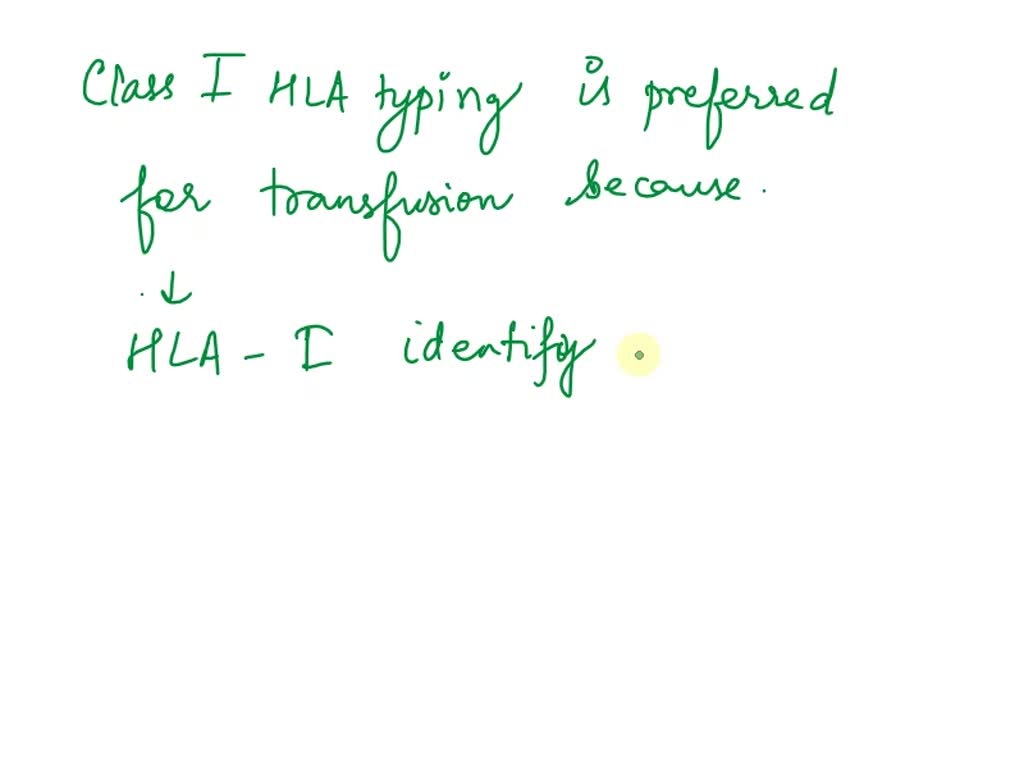 Class I HLA typing is preferred
for transfusion because.
. ↓
HLA - I identify